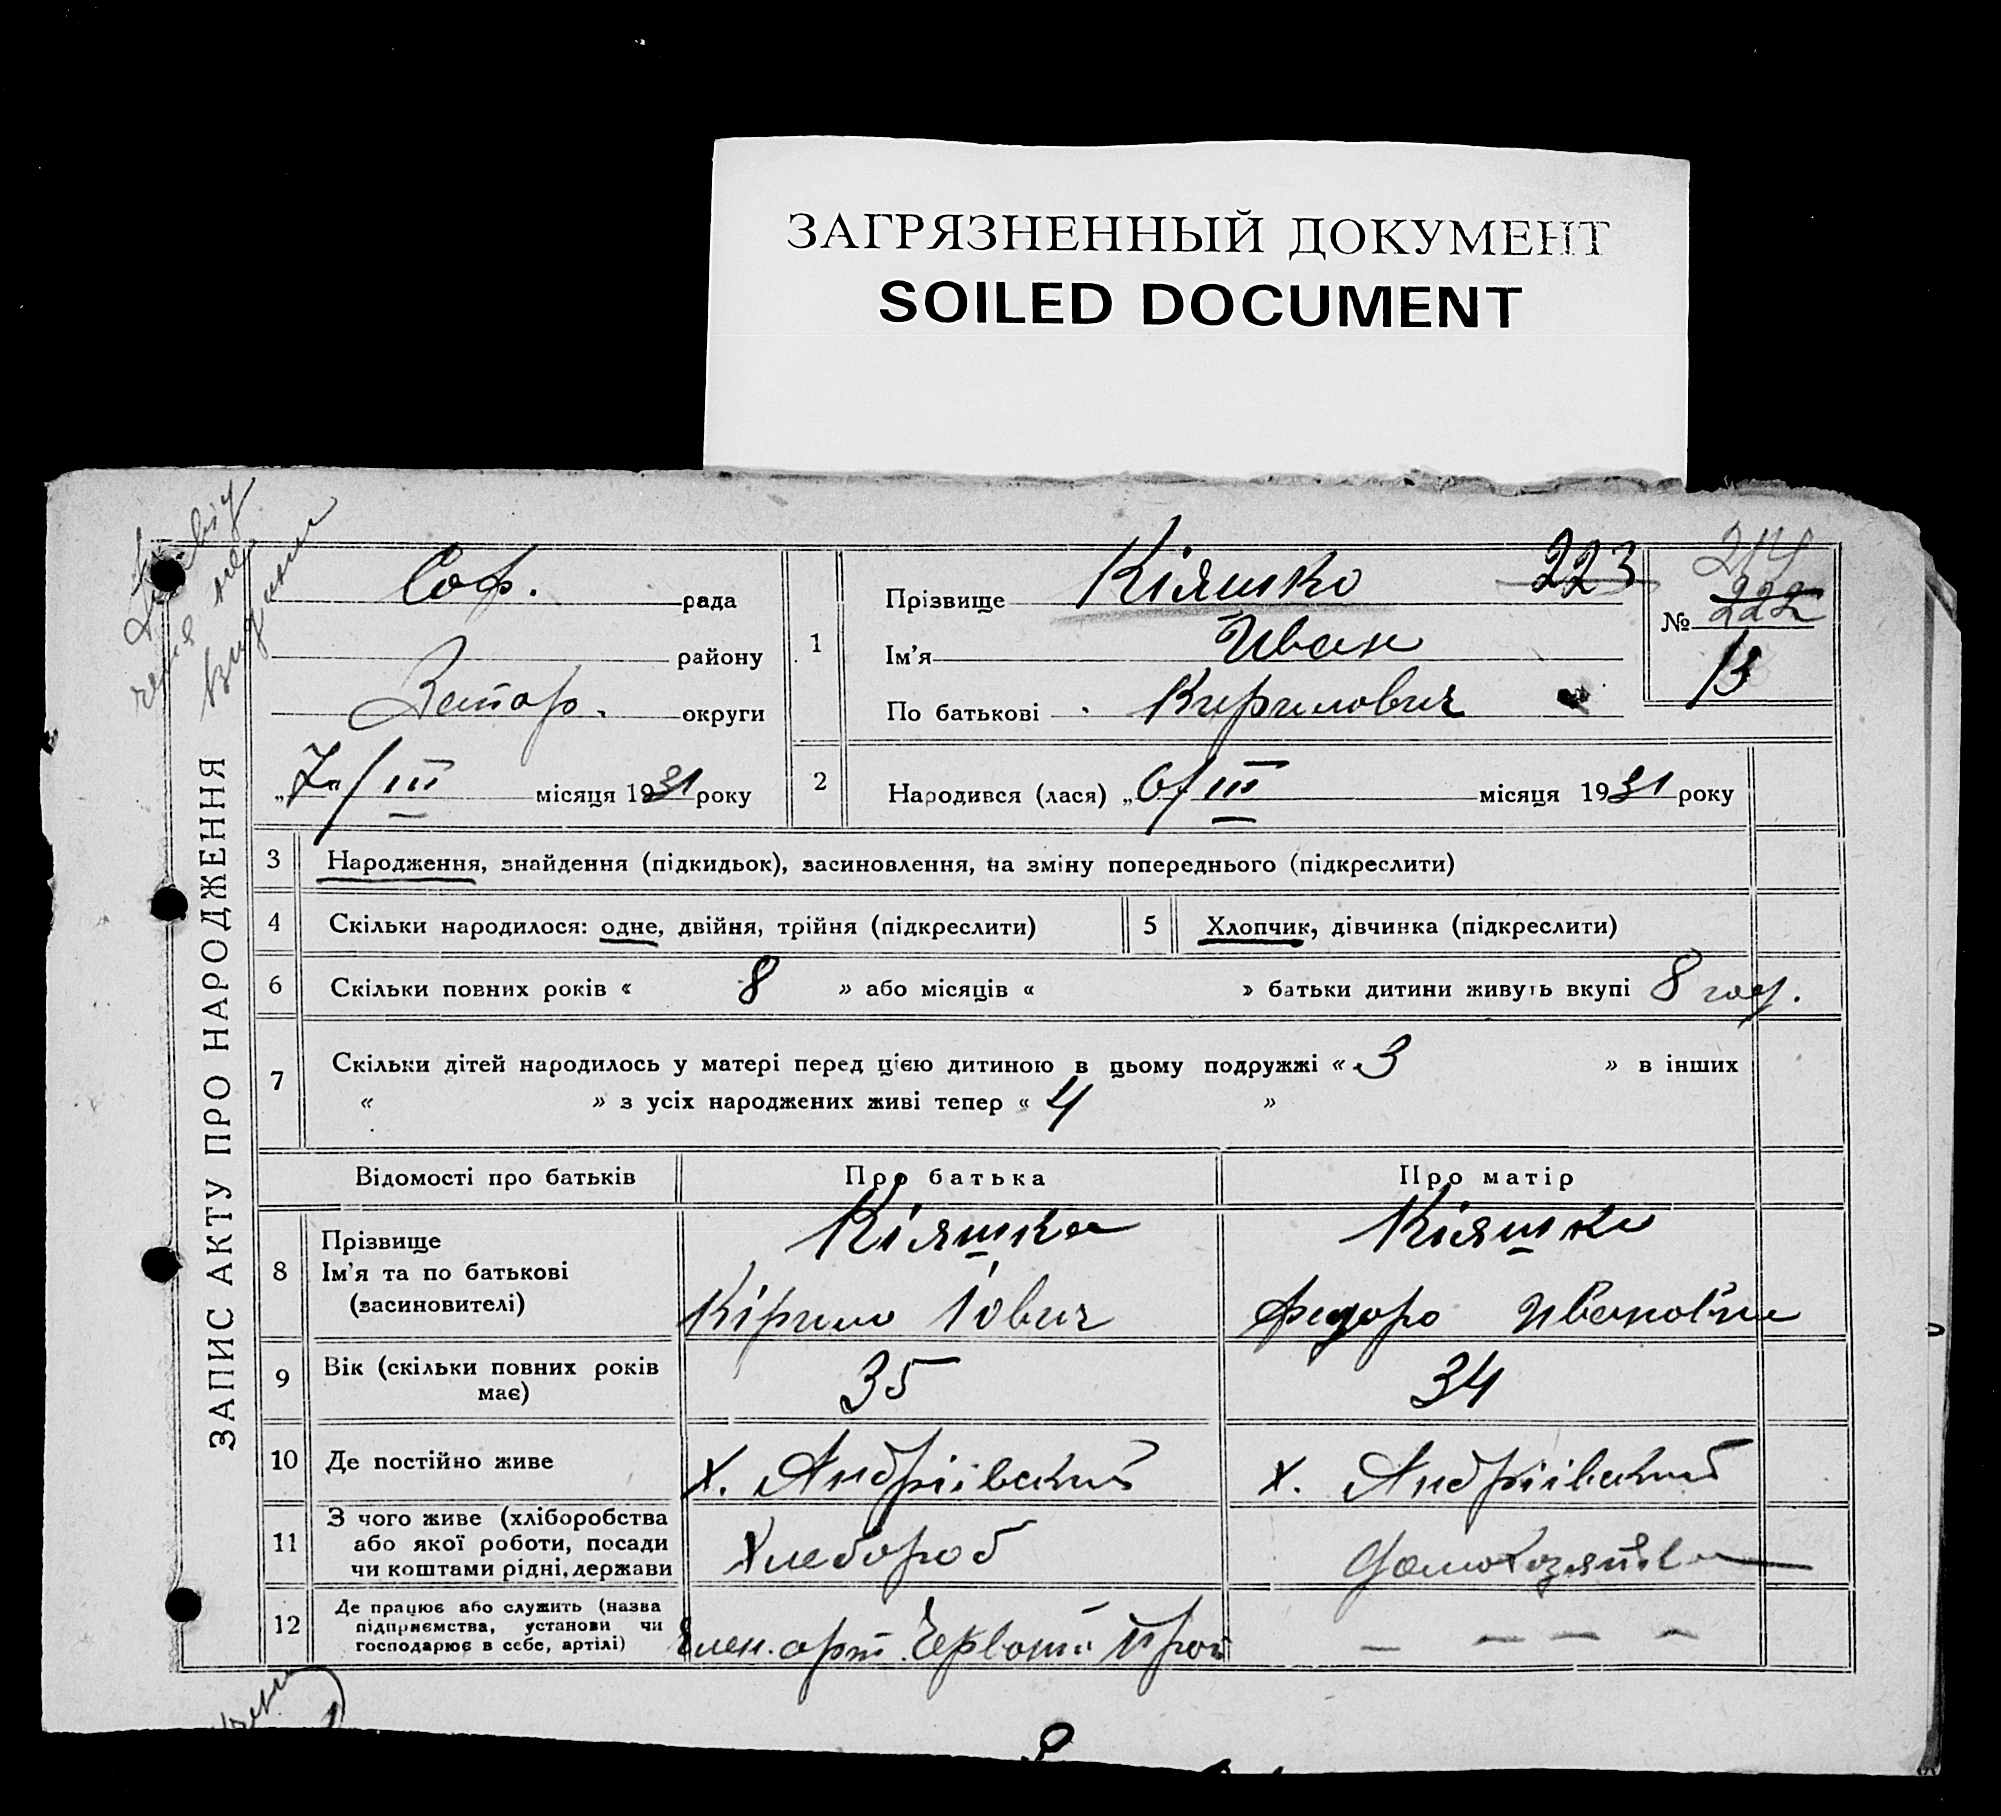 ЗАГРЯЗНЕННЫЙ ДОКУМЕНТ
SOILED DOCUMENT
ЗАПИС АКТУ ПРО НАРОДЖЕННЯ
Соф. рада
району
Запор. округи
„7“/III місяця 1931 року
1
Прізвище Кіяшко 223
Ім'я Иван
По батькові Кирилович
214
№ 222
13
2 Народився (лася) „6/III місяця 1931 року
3 Народження, знайдення (підкидьок), засиновлення, на зміну попереднього (підкреслити)
4 Скільки народилося: одне, двійня, трійня (підкреслити)
5 Хлопчик, дівчинка (підкреслити)
6 Скільки повних років « 8 » або місяців « » батьки дитини живуть вкупі 8 год.
7 Скільки дітей народилось у матері перед цією дитиною в цьому подружжі « 3 » в інших
« » з усіх народжених живі тепер « 4 »
Відомості про батьків Про батька Про матір
8 Прізвище Кіяшко Кіяшко
Ім'я та по батькові
(засиновителі) Кірило Іович Федора Ивановна
9 Вік (скільки повних років
має) 35 34
10 Де постійно живе х. Андріівский х. Андріівский
11 З чого живе (хліборобства
або якої роботи, посади
чи коштами рідні, держави Хлебороб домохозяйка
12 Де працює або служить (назва
підприємства, установи чи
господарює в себе, артілі) Член. арт. Червоний Прой — — — —